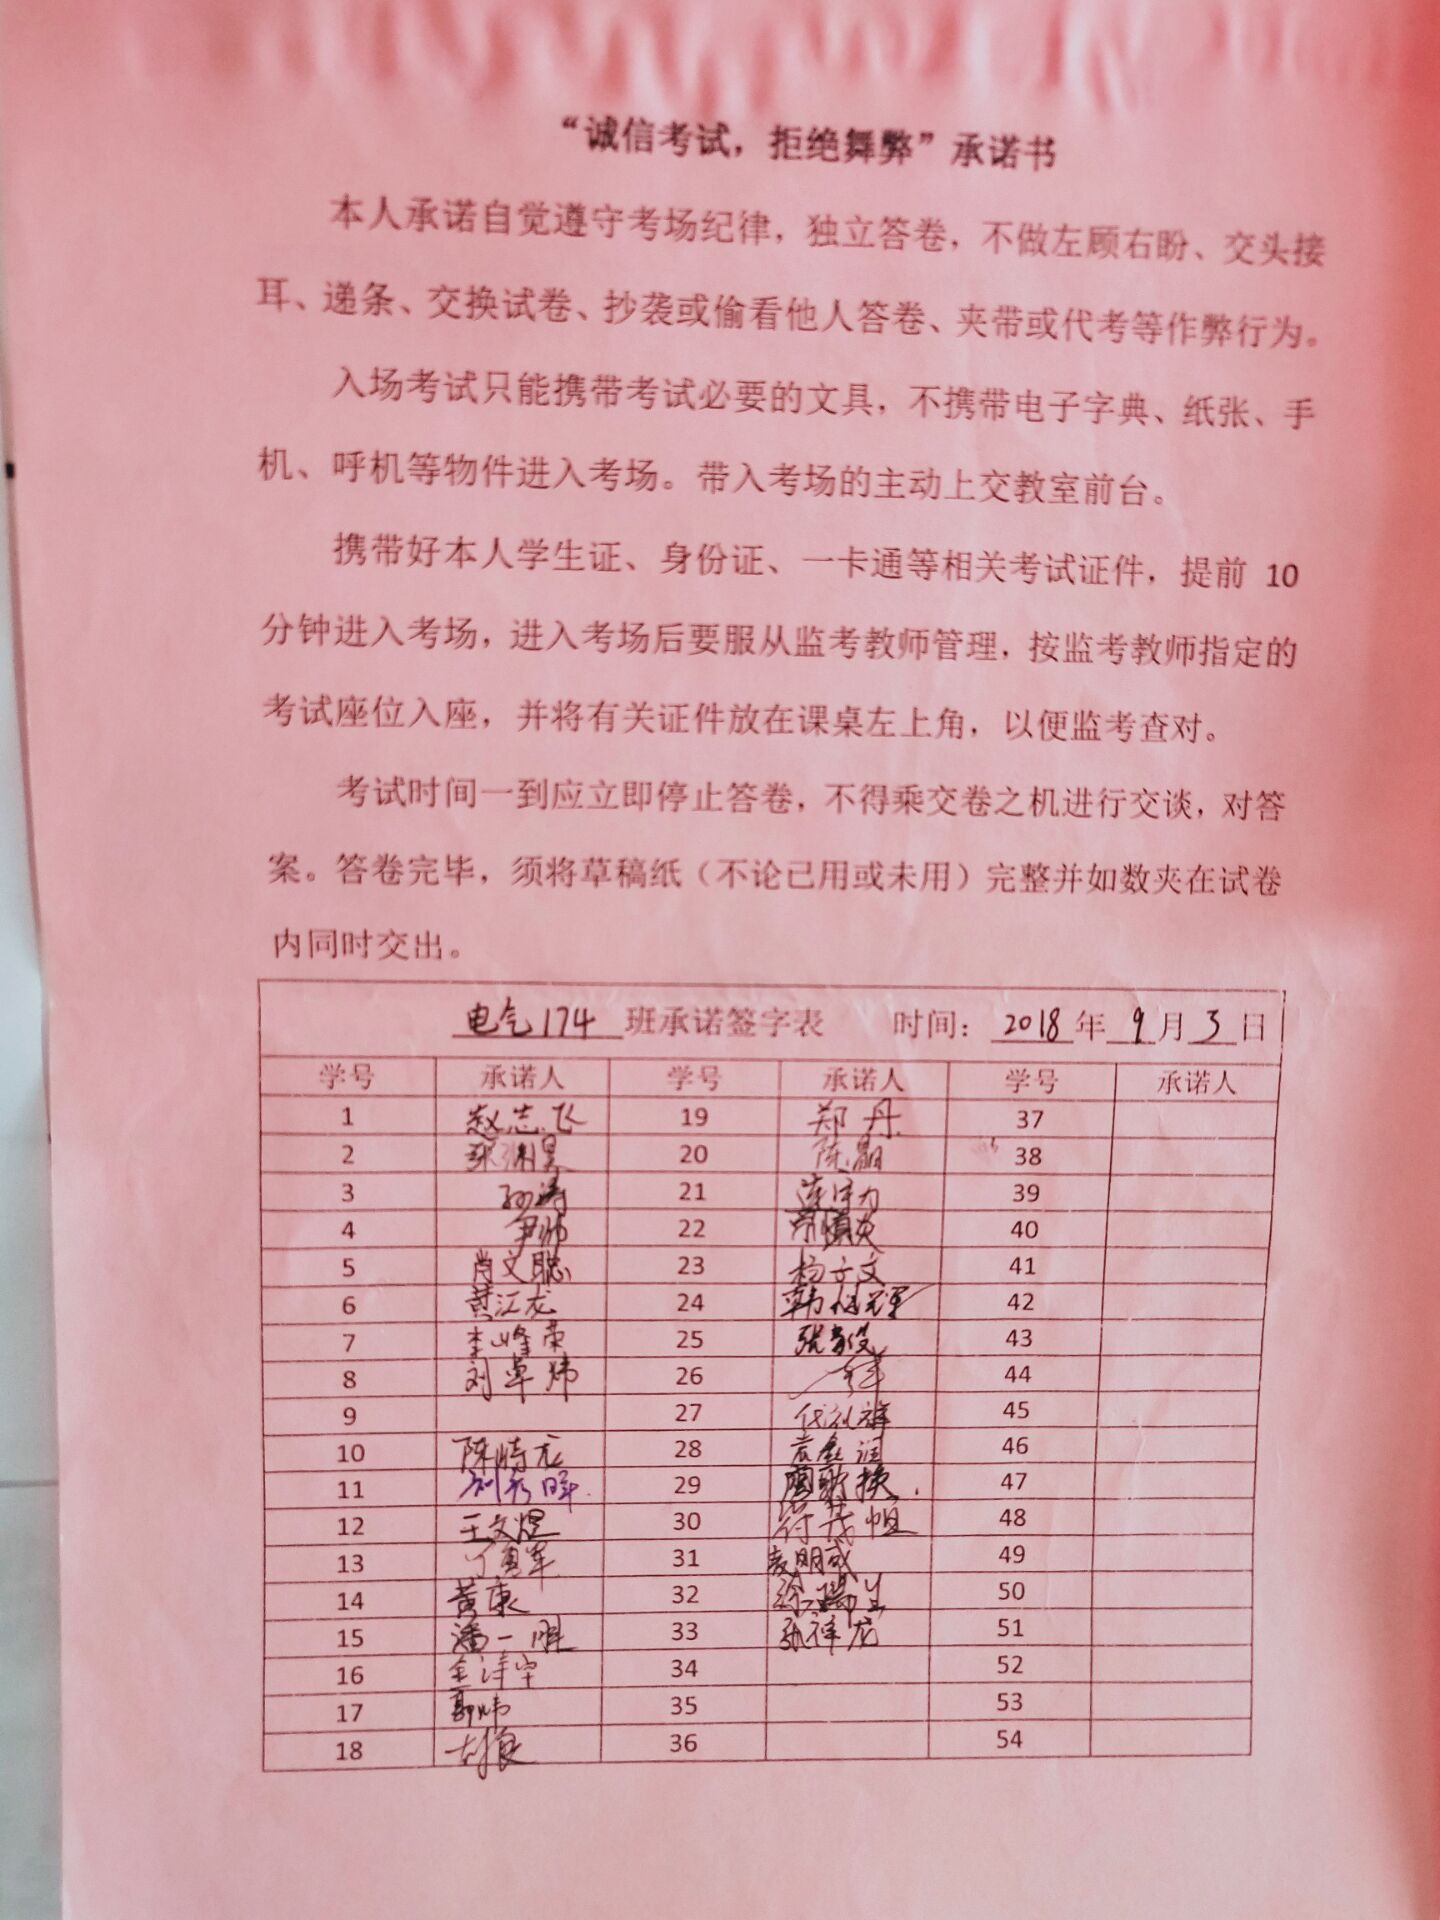 “诚信考试，拒绝舞弊”承诺书
本人承诺自觉遵守考场纪律，独立答卷，不做左顾右盼、交头接
耳、递条、交换试卷、抄袭或偷看他人答卷、夹带或代考等作弊行为。
入场考试只能携带考试必要的文具，不携带电子字典、纸张、手
机、呼机等物件进入考场。带入考场的主动上交教室前台。
携带好本人学生证、身份证、一卡通等相关考试证件，提前 10
分钟进入考场，进入考场后要服从监考教师管理，按监考教师指定的
考试座位入座，并将有关证件放在课桌左上角，以便监考查对。
考试时间一到应立即停止答卷，不得乘交卷之机进行交谈，对答
案。答卷完毕，须将草稿纸（不论已用或未用）完整并如数夹在试卷
内同时交出。
电气174 班承诺签字表 时间：2018年9月3日
学号 承诺人 学号 承诺人 学号 承诺人
1 赵志飞 19 郑丹 37
2 20 陈 38
3 孙涛 21 力 39
4 尹帅 22 40
5 肖文聪 23 杨子文 41
6 黄江龙 24 韩 42
7 李峰荣 25 张 43
8 刘卓炜 26 44
9 27 代礼祥 45
10 陈时龙 28 46
11 刘 29 换 47
12 王文煜 30 48
13 丁勇军 31 明成 49
14 黄康 32 徐瑞兰 50
15 潘一明 33 张祥龙 51
16 宇 34 52
17 郭炜 35 53
18 36 54